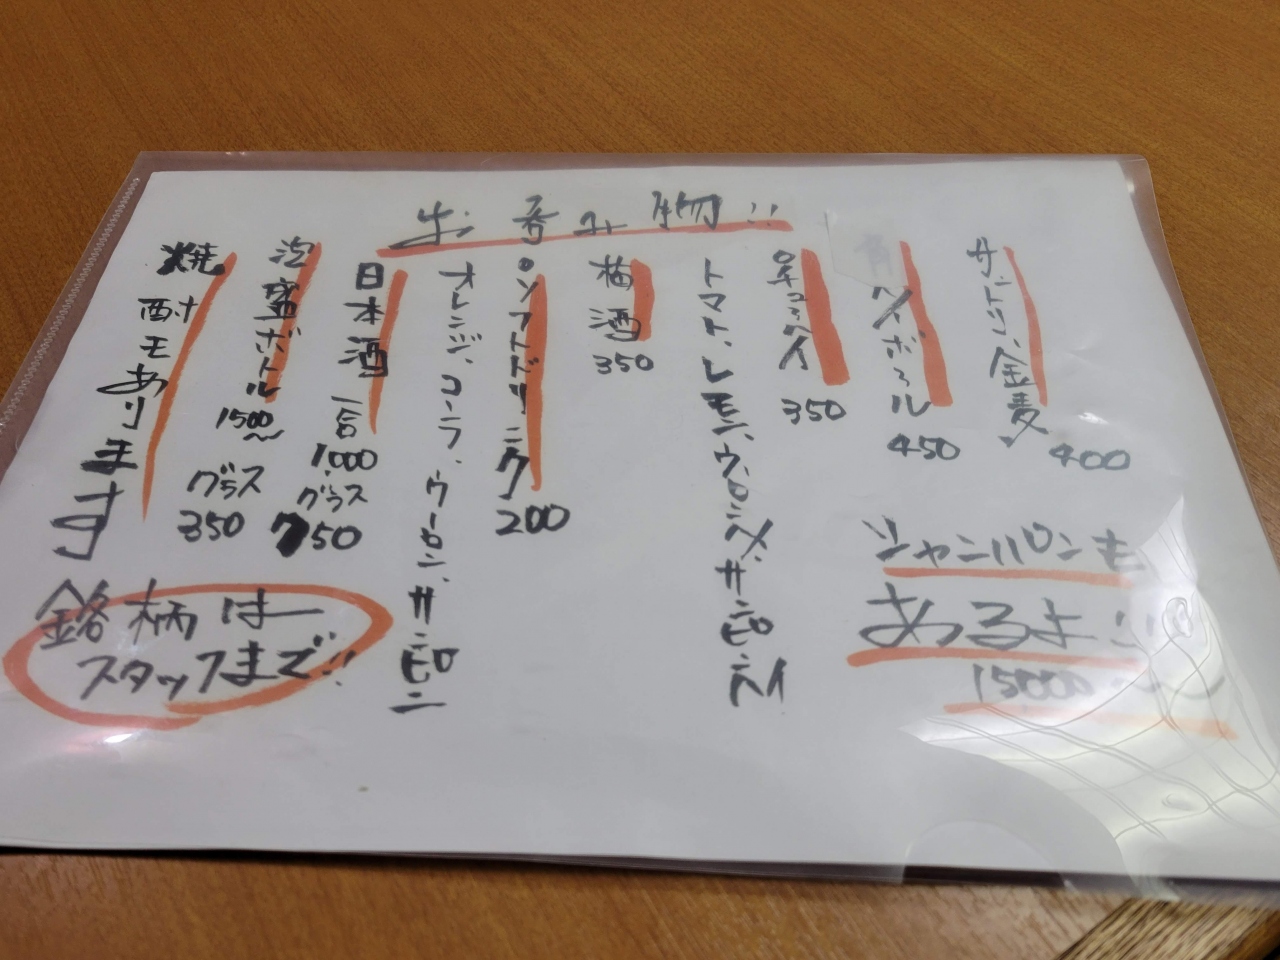 お呑み物!!
サントリー金麦
400
ハイボール
450
○チューハイ
350
トマト、レモン、ウーロン、サンピン
梅酒
350
○ソフトドリンク
200
オレンジ、コーラ、ウーロン、サンピン
日本酒
一合
1000
グラス
750
泡盛ボトル
1500~
グラス
350
焼酎モあります
銘柄は
スタッフまで!!
シャンパンも
あるよ!!
15000~